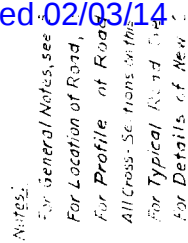 ed 02/03/14
Notes:
For General Notes, see
For Location of Road,
For Profile of Road
All Cross-Sections on this
For Typical Road
For Details of New